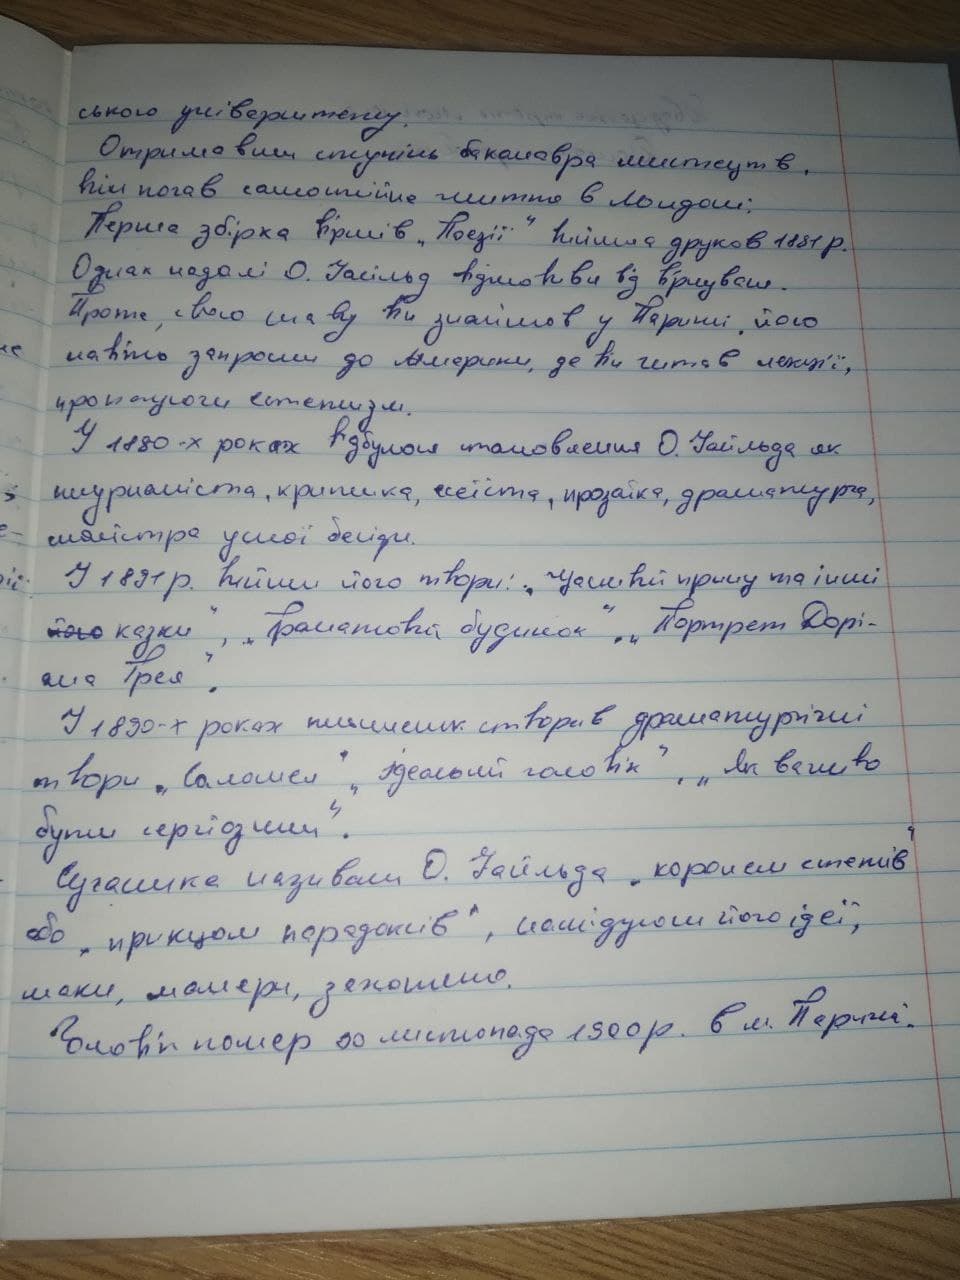 ського університету.
Отримавши ступінь бакалавра мистецтв,
він почав самостійне життя в Лондоні.
Перша збірка віршів „Поезії" вийшла друком 1881 р.
Однак надалі О. Уайльд відмовився від віршування.
Проте, свою славу він знайшов у Парижі, його
навіть запросили до Америки, де він читав лекції,
пропагуючи естетизм.
У 1880-х роках відбулося становлення О. Уайльда як
журналіста, критика, есеїста, прозаїка, драматурга,
майстра усної бесіди.
У 1891 р. вийшли його твори: „Щасливий принц та інші
його казки", „Гранатовий будинок", „Портрет Дорі-
ана Грея".
У 1890-х роках письменник створив драматургічні
твори „Саломея", „Ідеальний чоловік", „Як важливо
бути серйозним".
Сучасники називали О. Уайльда „королем естетів"
або „принцом парадоксів", наслідували його ідеї,
смаки, манери, захоплено.
Чоловік помер 30 листопада 1900 р. в м. Парижі.